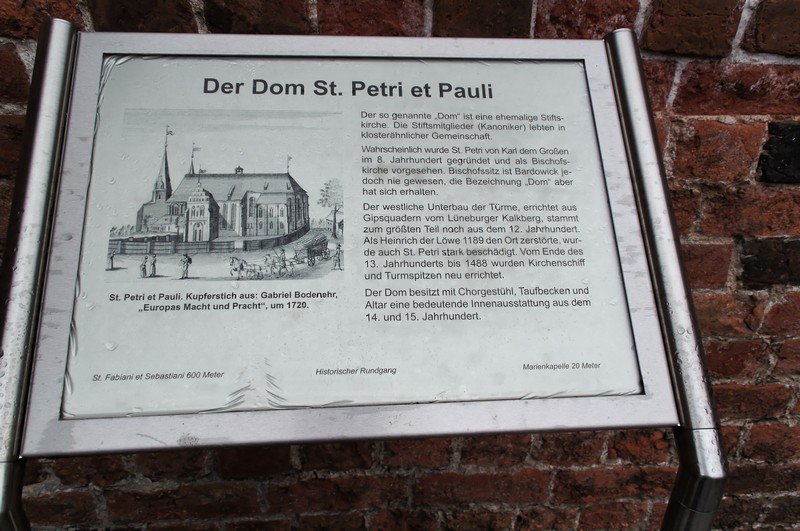 Der Dom St. Petri et Pauli
Der so genannte „Dom“ ist eine ehemalige Stifts-
kirche. Die Stiftsmitglieder (Kanoniker) lebten in
klosterähnlicher Gemeinschaft.
Wahrscheinlich wurde St. Petri von Karl dem Großen
im 8. Jahrhundert gegründet und als Bischofs-
kirche vorgesehen. Bischofssitz ist Bardowick je-
doch nie gewesen, die Bezeichnung „Dom“ aber
hat sich erhalten.
Der westliche Unterbau der Türme, errichtet aus
Gipsquadern vom Lüneburger Kalkberg, stammt
zum größten Teil noch aus dem 12. Jahrhundert.
Als Heinrich der Löwe 1189 den Ort zerstörte, wur-
de auch St. Petri stark beschädigt. Vom Ende des
13. Jahrhunderts bis 1488 wurden Kirchenschiff
und Turmspitzen neu errichtet.
Der Dom besitzt mit Chorgestühl, Taufbecken und
Altar eine bedeutende Innenausstattung aus dem
14. und 15. Jahrhundert.
St. Petri et Pauli. Kupferstich aus: Gabriel Bodenehr,
„Europas Macht und Pracht“, um 1720.
St. Fabiani et Sebastiani 600 Meter
Historischer Rundgang
Marienkapelle 20 Meter